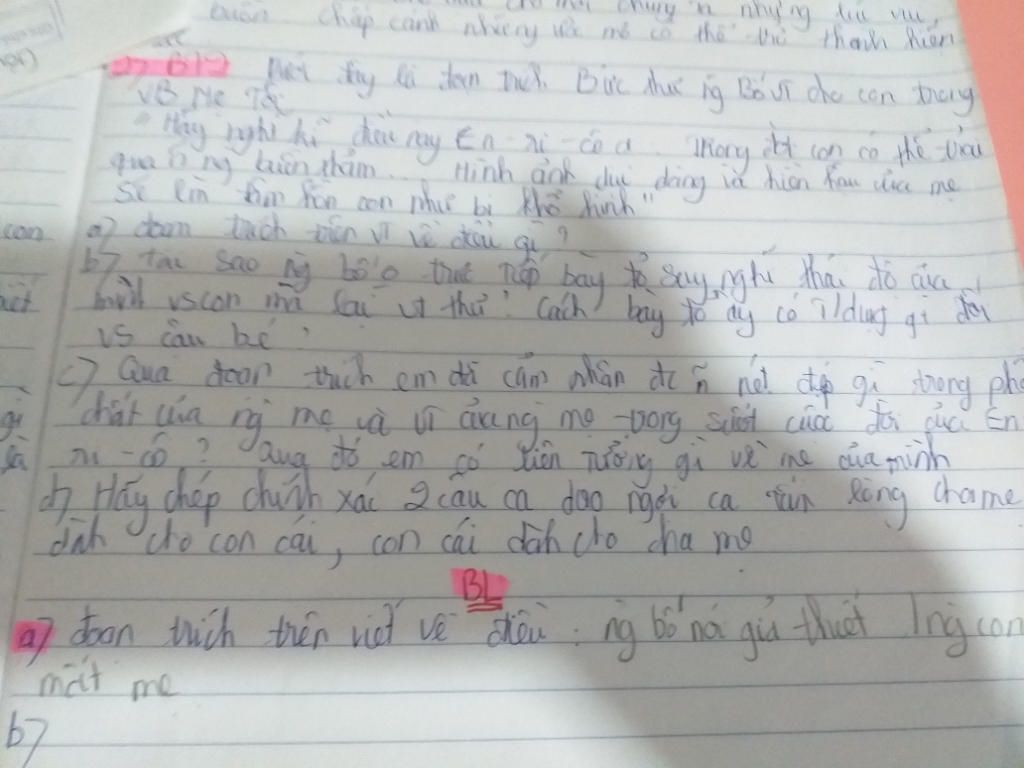 buồn chắp cánh những ước mơ có thể trở thành hiện
Dưới đây là đoạn trích. Bức thư ng Bố vĩ cho con trong
VB Mẹ Tôi
"Hãy nghĩ kĩ điều này En-ri-cô ạ. Trong đời con có thể trải
qua ~ ng buồn thảm... Hình ảnh dịu dàng và hiền hậu của mẹ
sẽ làm tâm hồn con như bị khổ hình"
a) đoạn trích trên vĩ về điều gì?
b) Tại sao ng bố o trực tiếp bày tỏ suy nghĩ thái độ của
mình vs con mà lại vĩ thư? Cách bày tỏ ấy có T/dụng gì đối
vs cậu bé
c) Qua đoạn trích em đã cảm nhận đc ~ nét đẹp gì trong ph
chất của ng mẹ và của ng mẹ trong suốt cuộc đời của En
ri-cô? Qua đó em có liên tưởng gì về mẹ của mình
d) Hãy chép chính xác 2 câu ca dao ngợi ca tấm lòng cha mẹ
dành cho con cái, con cái dành cho cha mẹ
BL
a) đoạn trích trên viết về điều: ng bố nói giả thuyết 1 ng con
mất mẹ
b)